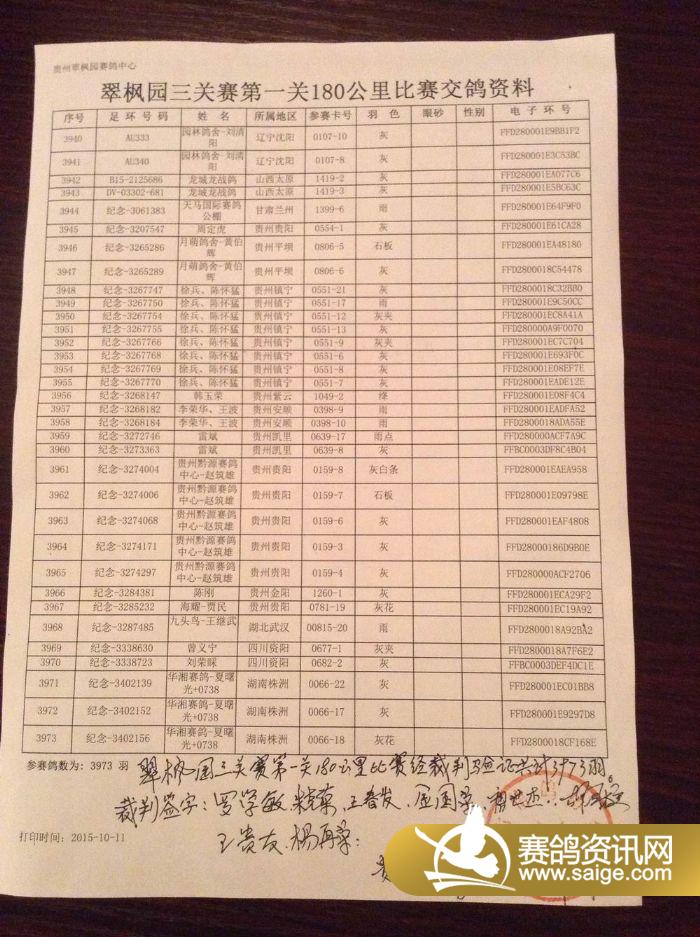 贵州翠枫园赛鸽中心
翠枫园三关赛第一关180公里比赛交鸽资料
序号 足环号码 姓名 所属地区 参赛卡号 羽色 眼砂 性别 电子环号
3940 AU333 园林鸽舍-刘清阳 辽宁沈阳 0107-10 灰 FFD280001E9BB1F2
3941 AU340 园林鸽舍-刘清阳 辽宁沈阳 0107-8 灰 FFD280001E3C53BC
3942 B15-2125686 龙城龙战鸽 山西太原 1419-2 灰 FFD280001EA077C6
3943 DV-03302-681 龙城龙战鸽 山西太原 1419-3 灰 FFD280001E5BC63C
3944 纪念-3061383 天马国际赛鸽公棚 甘肃兰州 1399-6 雨 FFD280001E64F9F0
3945 纪念-3207547 周定虎 贵州贵阳 0554-1 灰 FFD280001E61CA28
3946 纪念-3265286 月萌鸽舍-黄伯辉 贵州平坝 0806-5 石板 FFD280001EA48180
3947 纪念-3265289 月萌鸽舍-黄伯辉 贵州平坝 0806-6 灰 FFD2800018C54478
3948 纪念-3267747 徐兵、陈怀猛 贵州镇宁 0551-21 灰 FFD2800018C32BB0
3949 纪念-3267750 徐兵、陈怀猛 贵州镇宁 0551-17 雨 FFD280001E9C50CC
3950 纪念-3267754 徐兵、陈怀猛 贵州镇宁 0551-12 灰夹 FFD280001EC8A41A
3951 纪念-3267755 徐兵、陈怀猛 贵州镇宁 0551-13 灰 FFD280000A9F0070
3952 纪念-3267766 徐兵、陈怀猛 贵州镇宁 0551-9 灰夹 FFD280001EC7C704
3953 纪念-3267768 徐兵、陈怀猛 贵州镇宁 0551-6 灰 FFD280001E693F0C
3954 纪念-3267769 徐兵、陈怀猛 贵州镇宁 0551-8 灰 FFD280001E08EF7E
3955 纪念-3267770 徐兵、陈怀猛 贵州镇宁 0551-7 灰 FFD280001EADE12E
3956 纪念-3268147 韩玉荣 贵州紫云 1049-2 绛 FFD280001E08F4C4
3957 纪念-3268182 李荣华、王波 贵州安顺 0398-9 雨 FFD280001EADFA52
3958 纪念-3268184 李荣华、王波 贵州安顺 0398-10 雨 FFD2800018ADA55E
3959 纪念-3272746 雷斌 贵州凯里 0639-17 雨点 FFD280000ACF7A9C
3960 纪念-3273363 雷斌 贵州凯里 0639-8 灰 FFBC0003DF8C4B04
3961 纪念-3274004 贵州黔源赛鸽中心-赵筑雄 贵州贵阳 0159-8 灰白条 FFD280001EAEA958
3962 纪念-3274006 贵州黔源赛鸽中心-赵筑雄 贵州贵阳 0159-7 石板 FFD280001E09798E
3963 纪念-3274068 贵州黔源赛鸽中心-赵筑雄 贵州贵阳 0159-6 灰 FFD280001EAF4808
3964 纪念-3274171 贵州黔源赛鸽中心-赵筑雄 贵州贵阳 0159-3 灰 FFD28000186D9B0E
3965 纪念-3274297 贵州黔源赛鸽中心-赵筑雄 贵州贵阳 0159-4 灰 FFD280000ACF2706
3966 纪念-3284381 陈刚 贵州金阳 1260-1 灰 FFD280001ECA29F2
3967 纪念-3285232 海耀-贾民 贵州贵阳 0781-19 灰花 FFD280001EC19A92
3968 纪念-3287485 九头鸟-王继武 湖北武汉 00815-20 雨 FFD2800018A92BA2
3969 纪念-3338630 曾义宁 四川资阳 0677-1 灰夹 FFD2800018A7F6E2
3970 纪念-3338723 刘荣睬 四川资阳 0682-2 灰 FFBC0003DEF4DC1E
3971 纪念-3402139 华湘赛鸽-夏曙光+0738 湖南株洲 0066-22 灰 FFD280001EC01BB8
3972 纪念-3402152 华湘赛鸽-夏曙光+0738 湖南株洲 0066-17 灰 FFD280001E9297D8
3973 纪念-3402156 华湘赛鸽-夏曙光+0738 湖南株洲 0066-18 灰花 FFD2800018CF168E
参赛鸽数为: 3973 羽 翠枫园三关赛第一关180公里比赛经裁判验证共计3973羽。
裁判签字: 罗学敏 王春发
王贵友 杨再
打印时间: 2015-10-11
赛鸽资讯网
www.saige.com